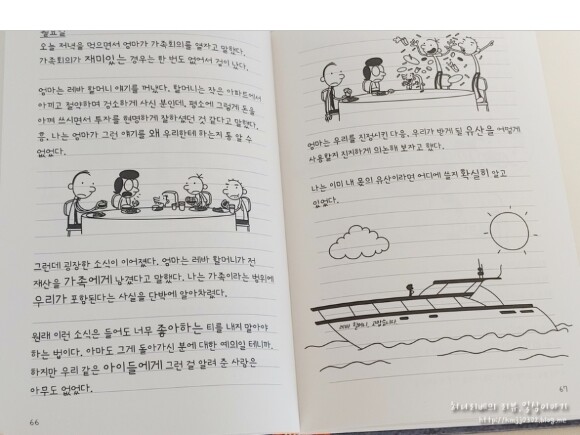 월요일
오늘 저녁을 먹으면서 엄마가 가족회의를 열자고 말했다.
가족회의가 재미있는 경우는 한 번도 없어서 겁이 났다.
엄마는 레바 할머니 얘기를 꺼냈다. 할머니는 작은 아파트에서
아끼고 절약하며 검소하게 사신 분인데, 평소에 그렇게 돈을
아껴 쓰시면서 투자를 현명하게 잘하셨던 것 같다고 말했다.
흥, 나는 엄마가 그런 얘기를 왜 우리한테 하는지 통 알 수
없었다.
그런데 굉장한 소식이 이어졌다. 엄마는 레바 할머니가 전
재산을 가족에게 남겼다고 말했다. 나는 가족이라는 범위에
우리가 포함된다는 사실을 단박에 알아차렸다.
원래 이런 소식은 들어도 너무 좋아하는 티를 내지 말아야
하는 법이다. 아마도 그게 돌아가신 분에 대한 예의일 테니까.
하지만 우리 같은 아이들에게 그런 걸 알려 준 사람은
아무도 없었다.
66
엄마는 우리를 진정시킨 다음, 우리가 받게 될 유산을 어떻게
사용할지 진지하게 의논해 보자고 했다.
나는 이미 내 몫의 유산이라면 어디에 쓸지 확실히 알고
있었다.
레바 할머니, 고맙습니다
67